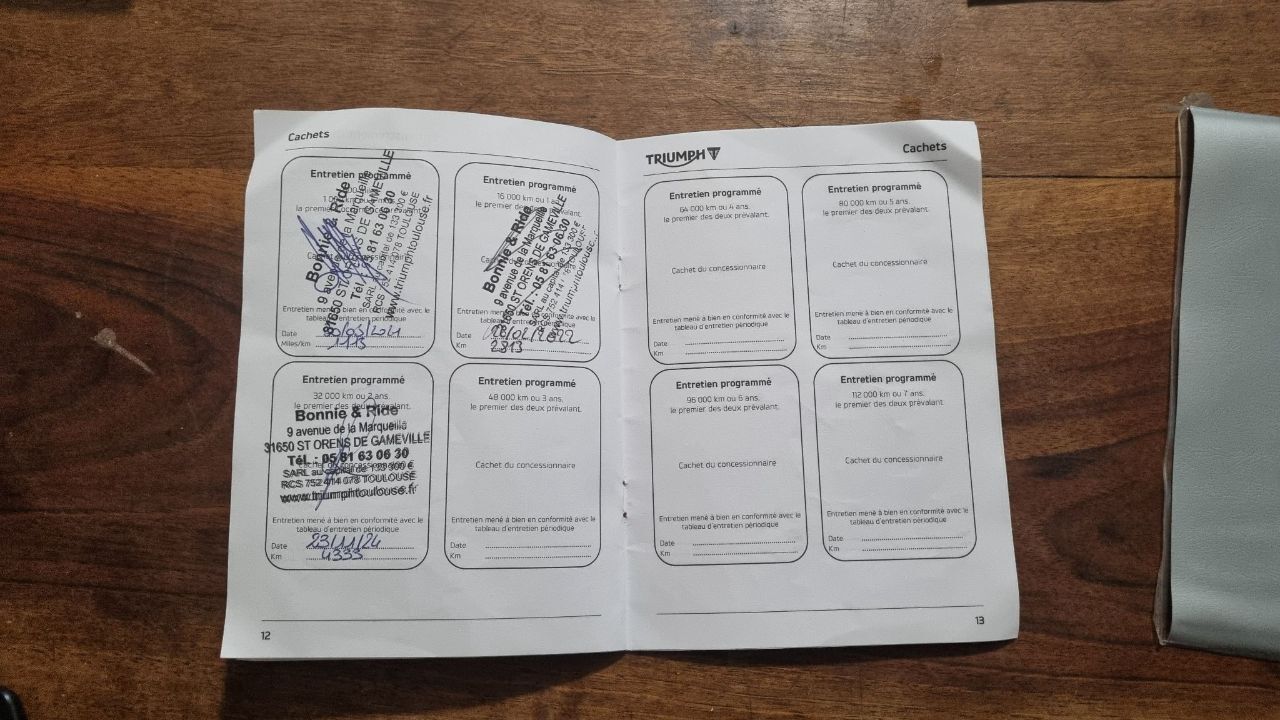 Cachets
Entretien programmé
la premier
Bonnie & Ride
31650 ST ORENS DE GAMEVILLE
Tél : 05 81 63 06 30
SARL au capital de 133 300 €
RCS 752 414 078 TOULOUSE
www.triumphtoulouse.fr
Entretien mené à bien en conformité avec le
tableau d'entretien périodique
Date
Miles/km 1113
Entretien programmé
16 000 km ou 1 an,
le premier des deux prévalant.
Bonnie & Ride
9 avenue de la Marqueille
31650 ST ORENS DE GAMEVILLE
Tél. : 05 81 63 06 30
SARL au capital de 133 300 €
www.triumphtoulouse.fr
Entretien mené à bien en conformité avec le
tableau d'entretien périodique
Date /02/2022
Km 2813
Entretien programmé
32 000 km ou 2 ans,
le premier des deux prévalant.
Bonnie & Ride
9 avenue de la Marqueille
31650 ST ORENS DE GAMEVILLE
Tél. : 05 81 63 06 30
Cachet du concessionnaire
SARL au capital de 133 300 €
RCS 752 414 078 TOULOUSE
www.triumphtoulouse.fr
Entretien mené à bien en conformité avec le
tableau d'entretien périodique
Date 23/11/24
Km 4353
Entretien programmé
48 000 km ou 3 ans,
le premier des deux prévalant.
Cachet du concessionnaire
Entretien mené à bien en conformité avec le
tableau d'entretien périodique
Date
Km
12
TRIUMPH
Cachets
Entretien programmé
64 000 km ou 4 ans,
le premier des deux prévalant.
Cachet du concessionnaire
Entretien mené à bien en conformité avec le
tableau d'entretien périodique
Date
Km
Entretien programmé
80 000 km ou 5 ans,
le premier des deux prévalant.
Cachet du concessionnaire
Entretien mené à bien en conformité avec le
tableau d'entretien périodique
Date
Km
Entretien programmé
96 000 km ou 6 ans,
le premier des deux prévalant.
Cachet du concessionnaire
Entretien mené à bien en conformité avec le
tableau d'entretien périodique
Date
Km
Entretien programmé
112 000 km ou 7 ans,
le premier des deux prévalant.
Cachet du concessionnaire
Entretien mené à bien en conformité avec le
tableau d'entretien périodique
Date
Km
13